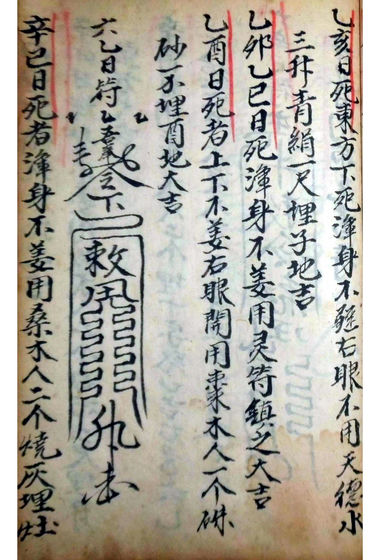 乙亥日死東方下死渾身不殭右眼不用天德水
三升青絹一尺埋子地吉
乙卯乙巳日死渾身不姜用灵符鎮之大吉
乙酉日死者上下不姜右眼開用棗木人一个硃
砂一不埋酉地大吉
六乙日符
敕
辛巳日死者渾身不姜用桑木人二个燒灰埋灶